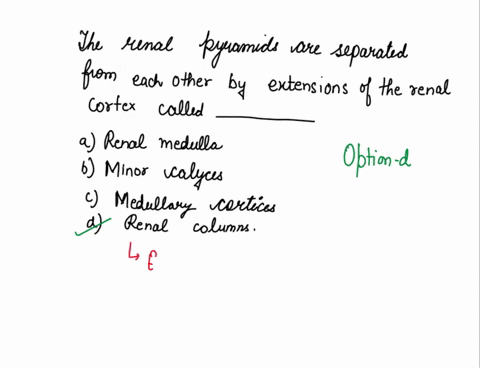 The renal pyramids are separated
from each other by extensions of the renal
cortex called ____________
a) Renal medulla
b) Minor calyces
c) Medullary cortices
d) Renal columns.
Option-d